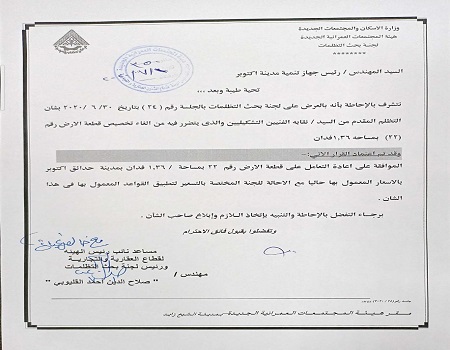 وزارة الاسكان والمجتمعات الجديدة
هيئة المجتمعات العمرانية الجديدة
لجنة بحث التظلمات
السيد المهندس / رئيس جهاز تنمية مدينة اكتوبر
تحية طيبة وبعد ...
نتشرف بالإحاطة بأنه بالعرض على لجنة بحث التظلمات بالجلسة رقم (٢٤) بتاريخ ٣٠ / ٦ / ٢٠٢٠ بشان
التظلم المقدم من السيد / نقابه الفنيين التشكيليين والذى يتضرر فيه من الغاء تخصيص قطعة الارض رقم
(٢٢) بمساحه ١,٣٦ فدان
وقد تم اعتماد القرار الآتى :-
الموافقة على اعادة التعامل على قطعة الارض رقم ٢٢ بمساحة / ١,٣٦ فدان بمدينة حدائق اكتوبر
بالاسعار المعمول بها حاليا مع الاحالة للجنة المختصة بالتسعير لتطبيق القواعد المعمول بها فى هذا
الشأن .
برجاء التفضل بالإحاطة والتنبيه بإتخاذ اللازم وإبلاغ صاحب الشأن .
وتفضلوا بقبول فائق الاحترام
مساعد نائب رئيس الهيئه
لقطاع العقارية والتجارية
ورئيس لجنة بحث التظلمات
مهندس /
" صلاح الدين احمد القليوبى "
مقر هيئة المجتمعات العمرانية الجديدة - بمدينة الشيخ زايد